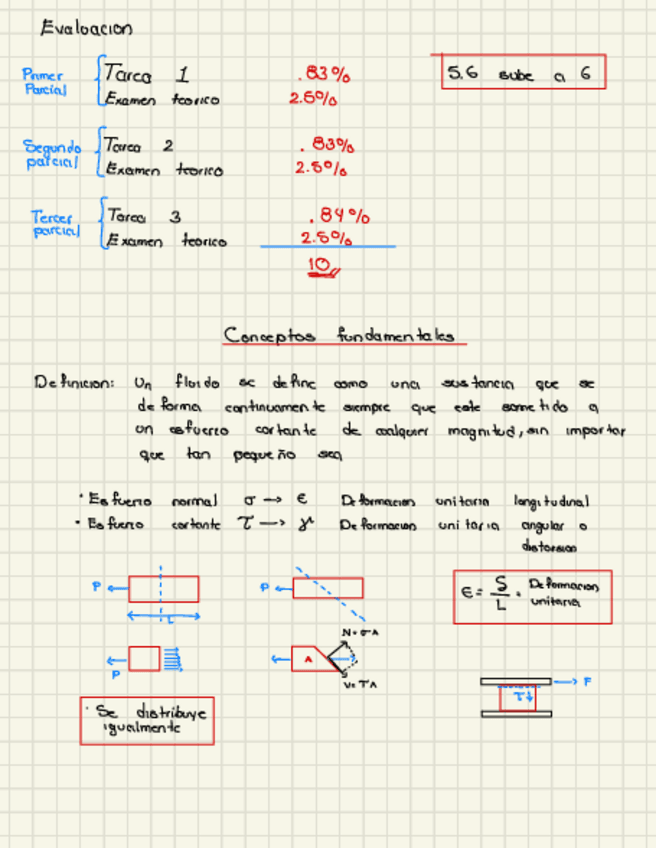 Evaluacion
Primer Parcial
Tarea 1 .83%
Examen teorico 2.5%
5.6 sube a 6
Segundo parcial
Tarea 2 .83%
Examen teorico 2.5%
Tercer parcial
Tarea 3 .84%
Examen teorico 2.5%
10
Conceptos fundamentales
Definicion: Un fluido se define como una sustancia que se
deforma continuamente siempre que este sometido a
un esfuerzo cortante de cualquier magnitud, sin importar
que tan pequeño sea
· Esfuerzo normal σ → ϵ Deformacion unitaria longitudinal
· Esfuerzo cortante τ → γ Deformacion unitaria angular o
distorsion
P
L
P
ϵ = S/L = Deformacion unitaria
P
A
N=σA
V=τA
F
τ
· Se distribuye
igualmente